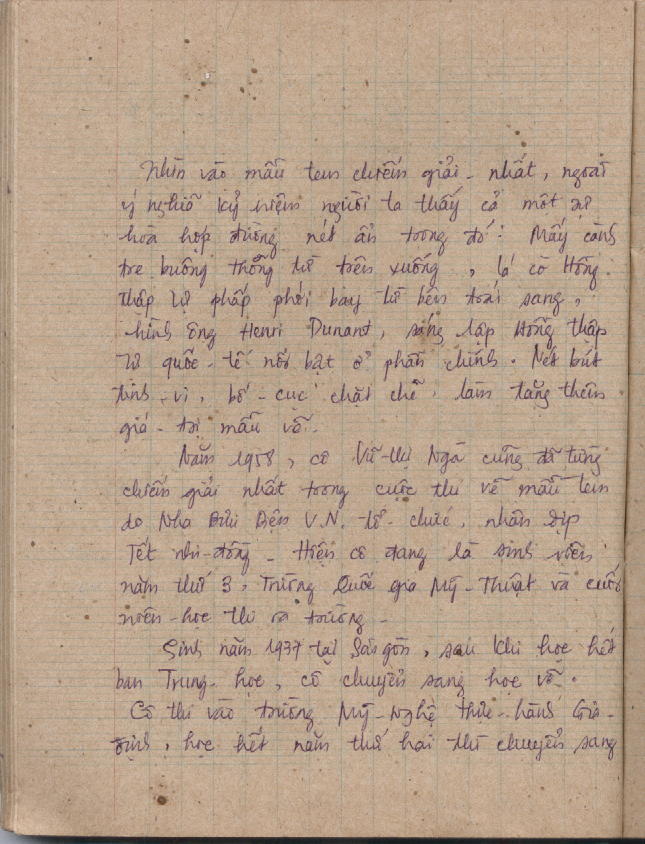 Nhìn vào mẫu tem chiếm giải-nhất, ngoài
ý nghiã kỷ niệm người ta thấy cả một sự
hoà hợp đường nét ẩn trong đó: Mấy cành
tre buông thõng từ trên xuống, lá cờ Hồng
thập tự phấp phới bay từ bên trái sang,
hình ông Henri Dunant, sáng lập Hồng thập
tự quốc-tế nổi bật ở phần chính. Nét bút
tinh-vi, bố-cục chặt chẽ, làm tăng thêm
giá-trị mẫu vẽ.
Năm 1958, cô Vũ-thị Ngà cũng đã từng
chiếm giải nhất trong cuộc thi vẽ mẫu tem
do Nha Bưu Điện V.N. tổ-chức, nhân dịp
Tết nhi-đồng - Hiện cô đang là sinh viên
năm thứ 3, Trường Quốc gia Mỹ-Thuật và cuối
niên-học thi ra trường -
Sinh năm 1937 tại Sài gòn, sau khi học hết
ban Trung-học, cô chuyển sang học vẽ.
Cô thi vào trường Mỹ-Nghệ thực-hành Gia-
định, học hết năm thứ hai thì chuyển sang